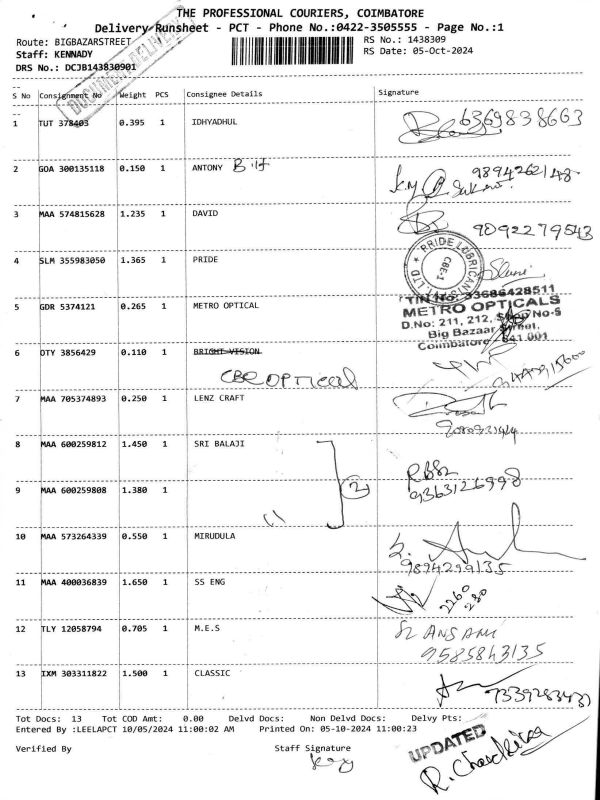 THE PROFESSIONAL COURIERS, COIMBATORE
Delivery Runsheet - PCT - Phone No.:0422-3505555 - Page No.:1
Route: BIGBAZARSTREET
RS No.: 1438309
Staff: KENNADY
RS Date: 05-Oct-2024
DRS No.: DCJB143830901
S No Consignment No Weight PCS Consignee Details Signature
1 TUT 378403 0.395 1 IDHYADHUL 6369838663
2 GOA 300135118 0.150 1 ANTONY 9894262148
3 MAA 574815628 1.235 1 DAVID 9092279543
4 SLM 355983050 1.365 1 PRIDE
PRIDE LUBRICANTS
CBE-1
5 GDR 5374121 0.265 1 METRO OPTICAL
TIN No: 33686428511
METRO OPTICALS
D.No: 211, 212, Shop No-9
Big Bazaar Street,
Coimbatore 641 001
6 OTY 3856429 0.110 1 BRIGHT VISION
CBE OPTICAL
7 MAA 705374893 0.250 1 LENZ CRAFT
8 MAA 600259812 1.450 1 SRI BALAJI
9363126998
9 MAA 600259808 1.380 1 " 2
10 MAA 573264339 0.550 1 MIRUDULA
9894299135
11 MAA 400036839 1.650 1 SS ENG
2260
280
12 TLY 12058794 0.705 1 M.E.S
9585843135
13 IXM 303311822 1.500 1 CLASSIC
Tot Docs: 13 Tot COD Amt: 0.00 Delvd Docs: Non Delvd Docs: Delvy Pts:
Entered By :LEELAPCT 10/05/2024 11:00:02 AM Printed On: 05-10-2024 11:00:23
Verified By Staff Signature
UPDATED